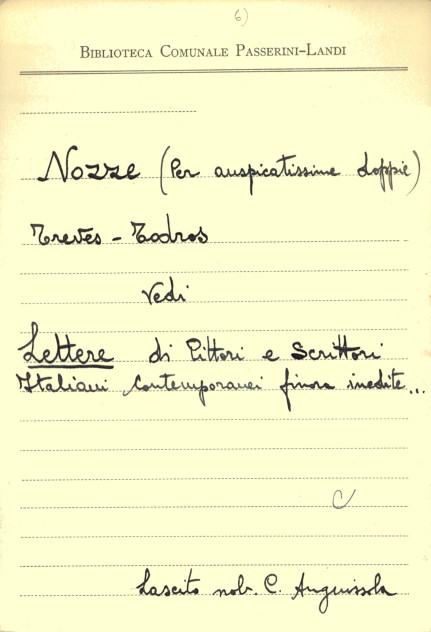 6)
BIBLIOTECA COMUNALE PASSERINI-LANDI
Nozze (Per auspicatissime doppie)
Treves - Todros
Vedi
Lettere di Pittori e Scrittori
Italiani Contemporanei finora inedite...
C
Lascito nob. C. Anguissola